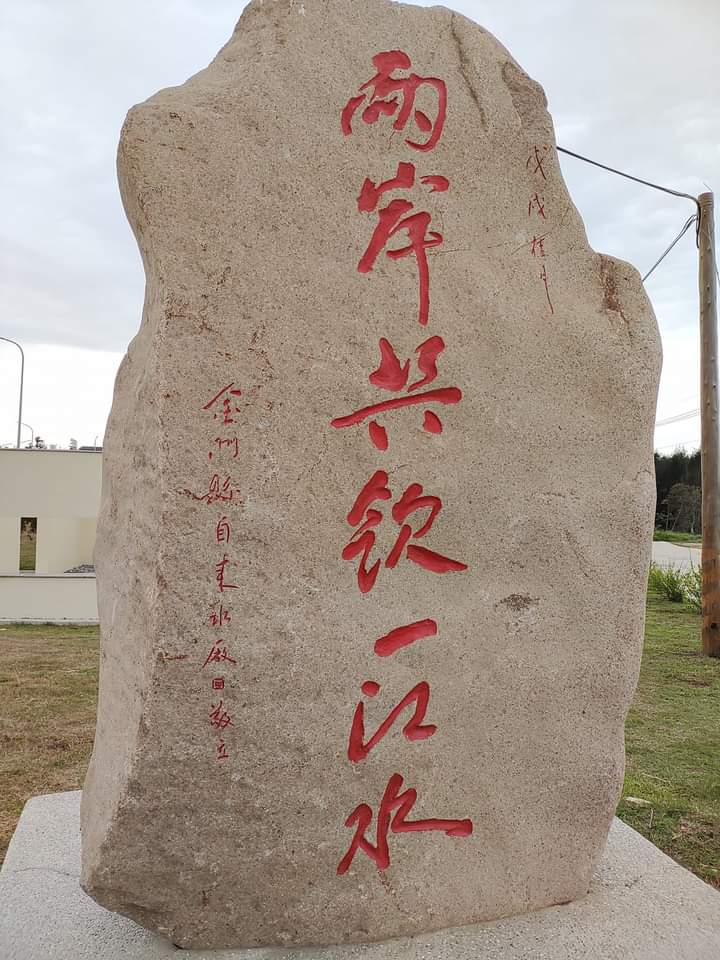 戊戌桂月
兩岸共飲一江水
金門縣自來水廠敬立